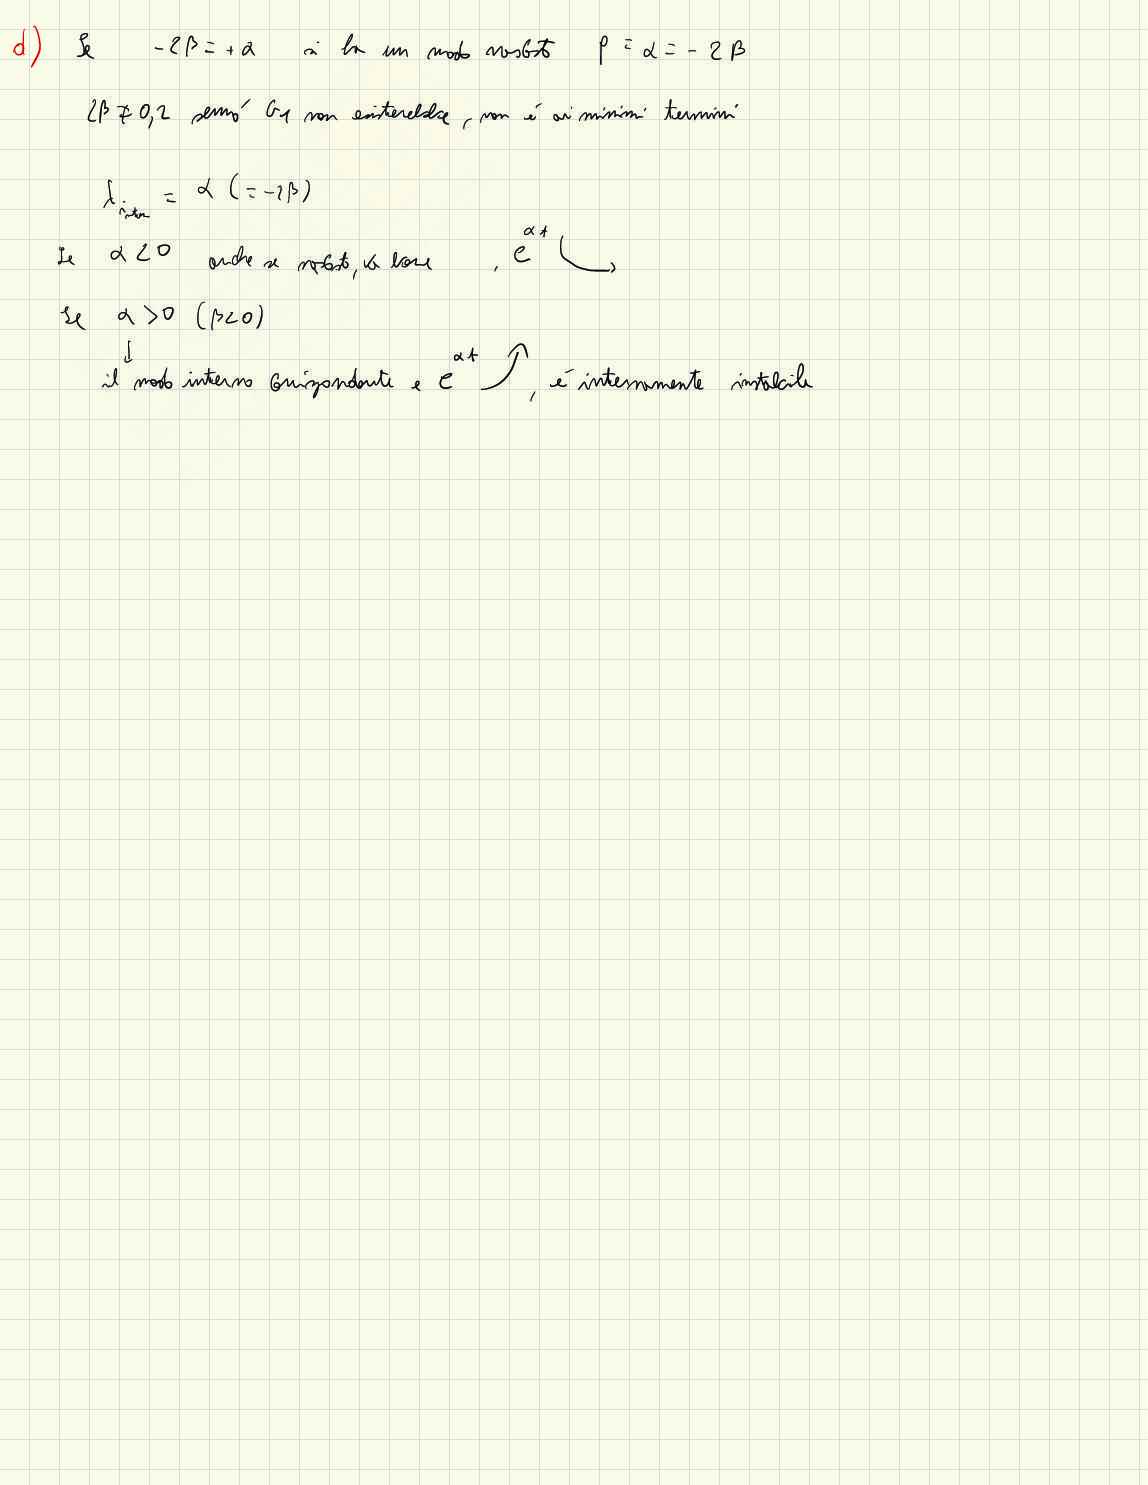 d) Se -2β = +α si ha un modo nascosto p = α = -2β
2β ≠ 0,2 sennó G1 non esisterebbe, non é ai minimi termini
λ = α (= -2β)
Se α < 0 anche se nascosto, va bene, e^{αt}
Se α > 0 (β < 0)
↓
il modo interno corrispondente e e^{αt}, é internamente instabile